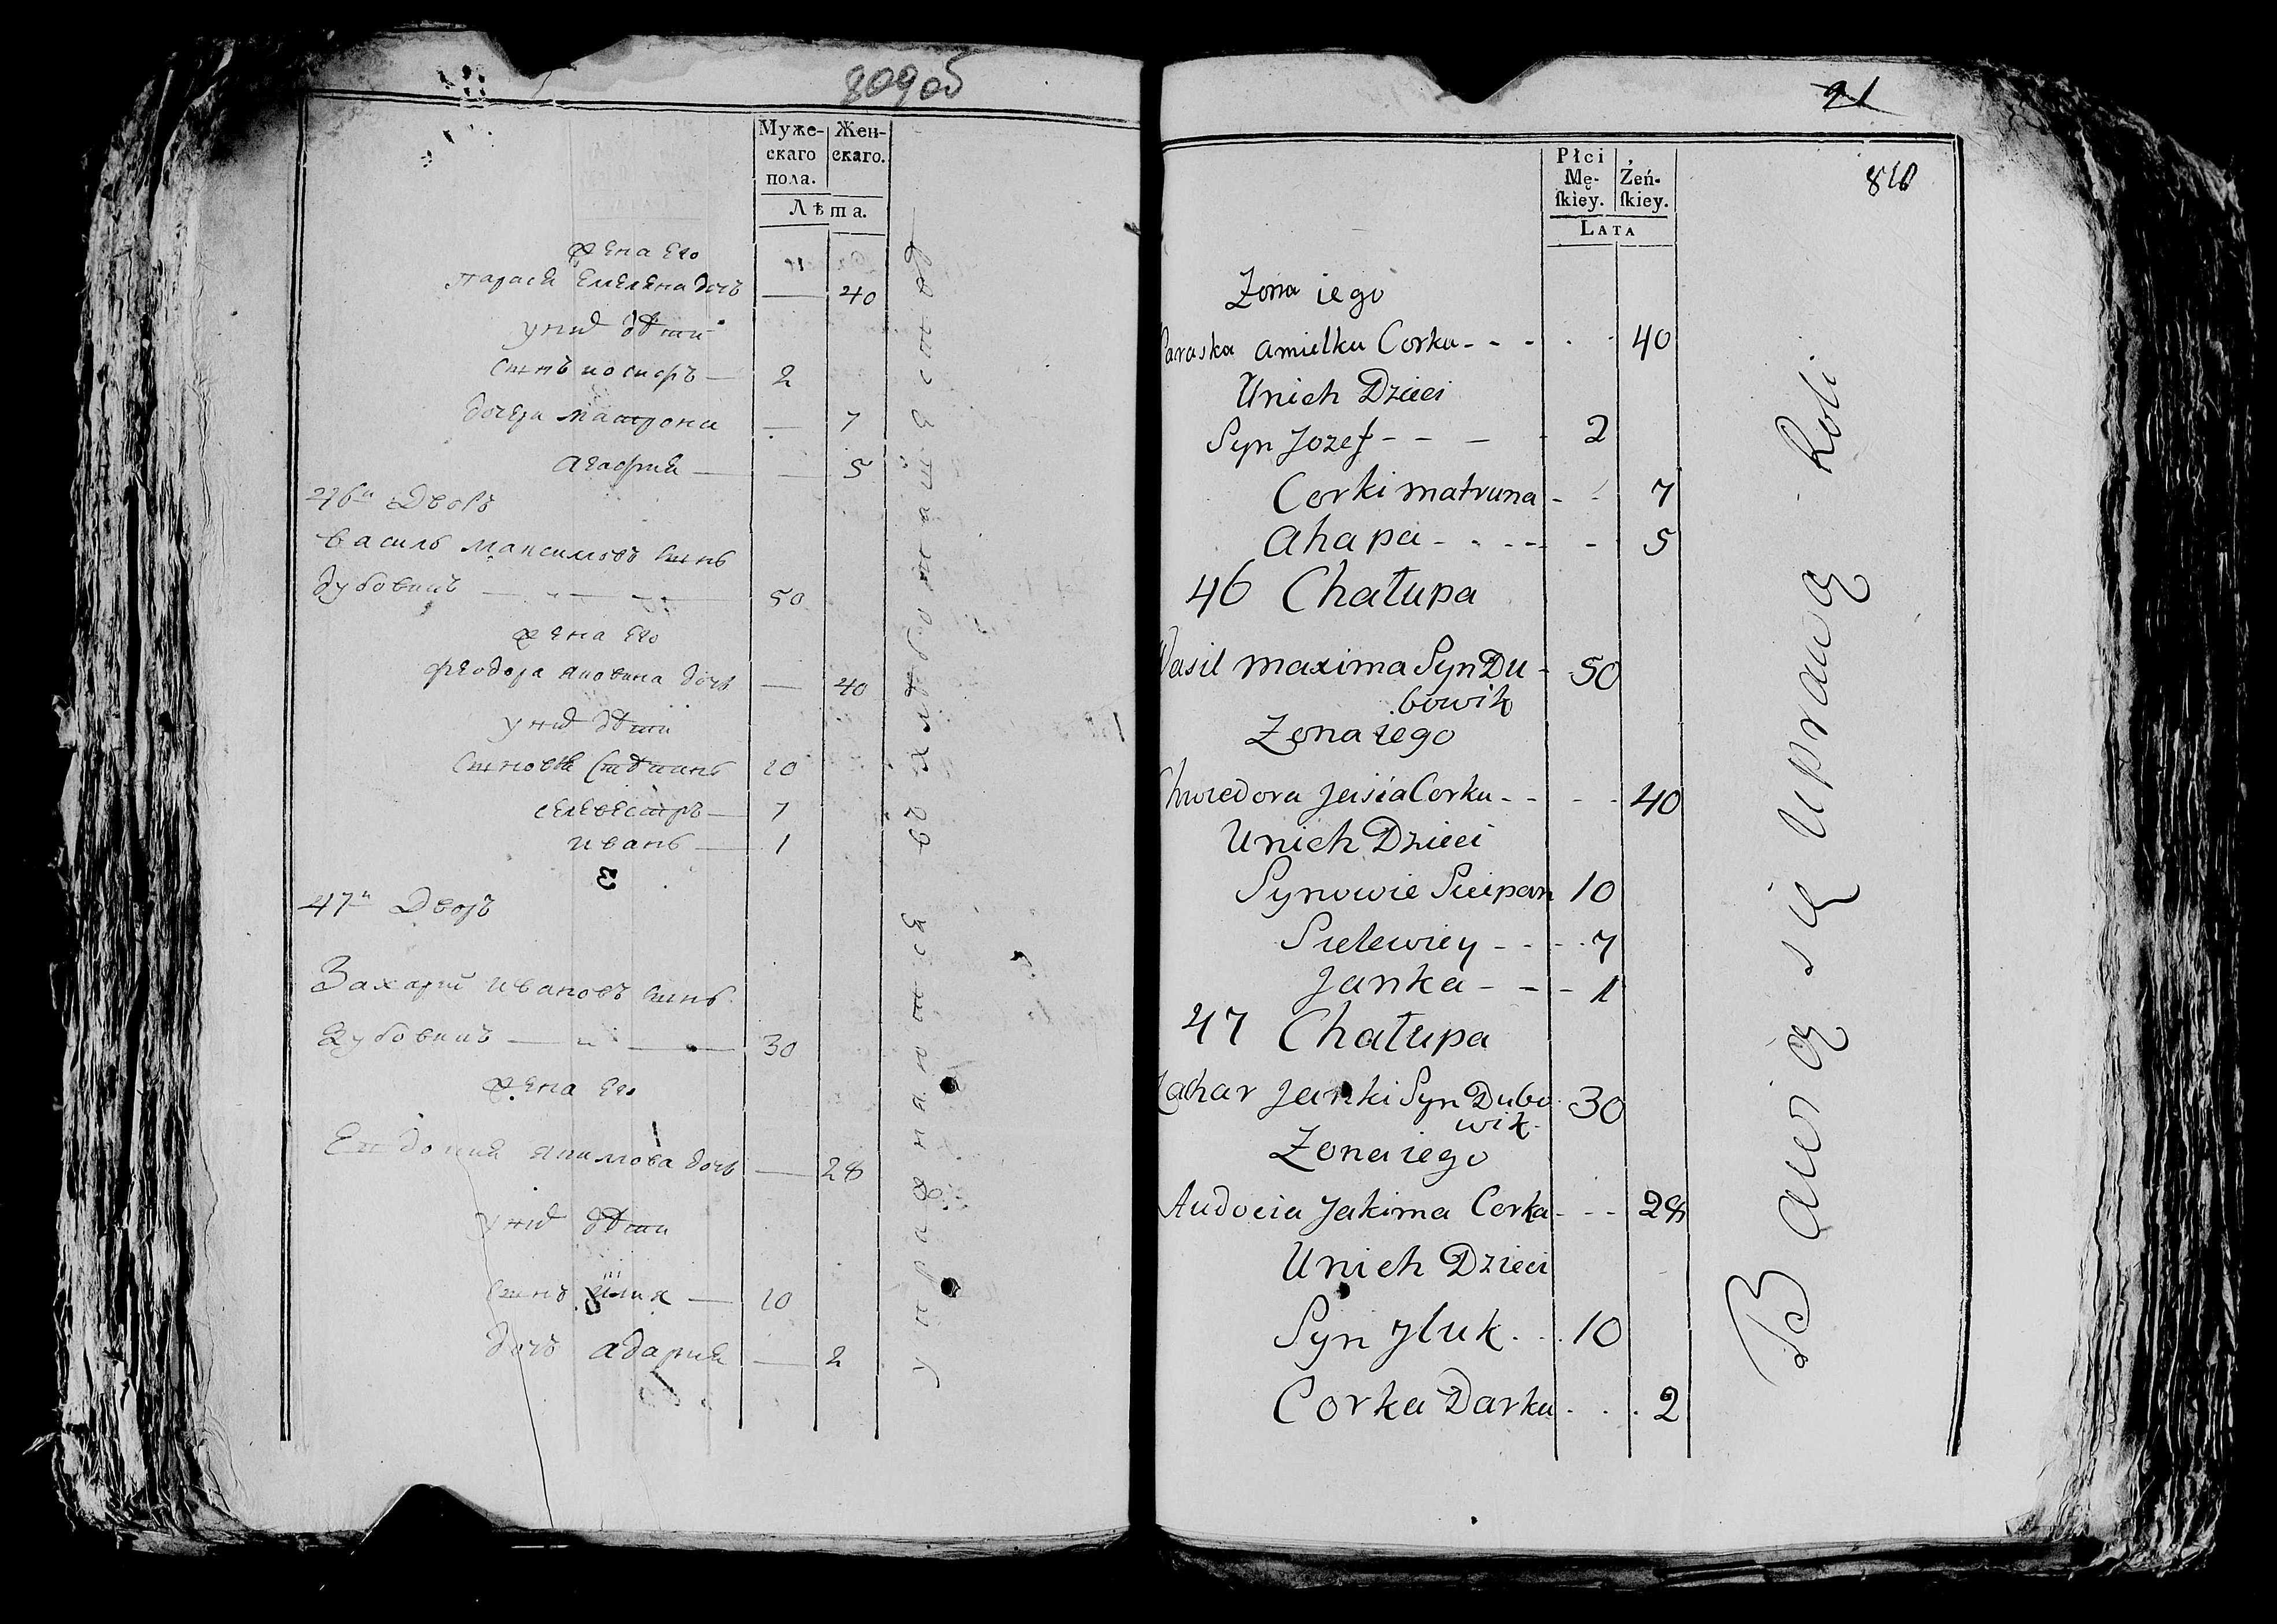 809об
Муже-
скаго
пола.
Жен-
скаго.
Лѣта.
жена Его
Парасея Емеляна дочь — 40
у них дѣти
Сынъ иосифъ — 2
дочери матрона — 7
агафия — 5
46й Дворъ
василь максимовъ сынъ
дубовикъ — 50
жена Его
феодора яковина дочь — 40
у них дѣти
Сыновья Стѣпанъ 10
селевестръ — 7
иванъ — 1
47й Дворъ
Захарий ивановъ сынъ
Дубовикъ — 30
жена Его
Евдокия якимова дочь — 28
у них дѣти
Сынъ илия — 10
дочь адария — 2
упражняются въ
21
810
Płci
Mę-
ſkiey.
Żeń-
ſkiey.
LATA
Zona iego
Paraska amielku Corka - - - 40
Unich Dzieci
Syn Jozef - - - 2
Corki matruna - - 7
Ahapa - - - - 5
46 Chałupa
Wasil maxima Syn Du- 50
bowik
Zona iego
Chwiedora Jeisia Corka - - - 40
Unich Dzieci
Synowie Sciepan 10
Sielewiey - - - 7
Janka - - - 1
47 Chałupa
Zachar Janki Syn Dubo 30
wik
Zona iego
Audocia Jakima Corka - - - 28
Unich Dzieci
Syn Jluk . . 10
Corka Darka . . . 2
Bawią się Uprawą Roli